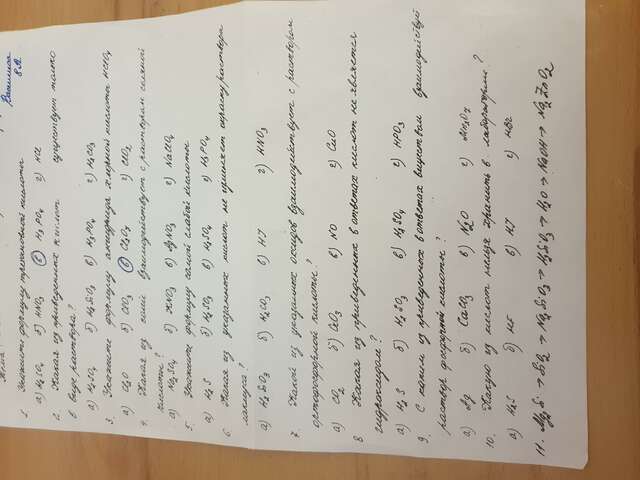 Тема:
1. Укажите формулу трехосновной кислоты
а) H₂SO₄ б) HNO₃ в) H₃PO₄ г) HCl
2. Какая из приведенных кислот существует только
в виде раствора?
а) H₂SO₄ б) H₂SiO₃ в) H₃PO₄ г) H₂CO₃
3. Укажите формулу ангидрида хлорной кислоты HClO₄
а) Cl₂O б) ClO₃ в) Cl₂O₇ г) ClO₂
4. Какая из солей взаимодействует с раствором соляной
кислоты?
а) Na₂SO₄ б) KNO₃ в) AgNO₃ г) NaClO₄
5. Укажите формулу самой слабой кислоты
а) H₂S б) H₂SO₃ в) H₂SO₄ г) H₃PO₄
6 Какая из указанных кислот не изменяет окраску раствора
лакмуса?
а) H₂SiO₃ б) H₂CO₃ в) HI г) HNO₃
7. Какой из указанных оксидов взаимодействует с раствором
ортофосфорной кислоты?
а) CO₂ б) CrO₃ в) NO г) CaO
8 Какая из приведенных в ответах кислот не является
гидроксидом?
а) H₂S б) H₂SO₃ в) H₂SO₄ г) HPO₃
9. С каким из приведенных в ответах веществом взаимодействует
раствор фосфорной кислоты?
а) Ag б) CaCO₃ в) N₂O г)
10. Какую из кислот нельзя хранить в лаборатории?
а) H₂S б) HF в) HI г) HBr
11. Mg₂Si → SiO₂ → Na₂SiO₃ → H₂SiO₃ → H₂O → NaOH → Na₂ZnO₂